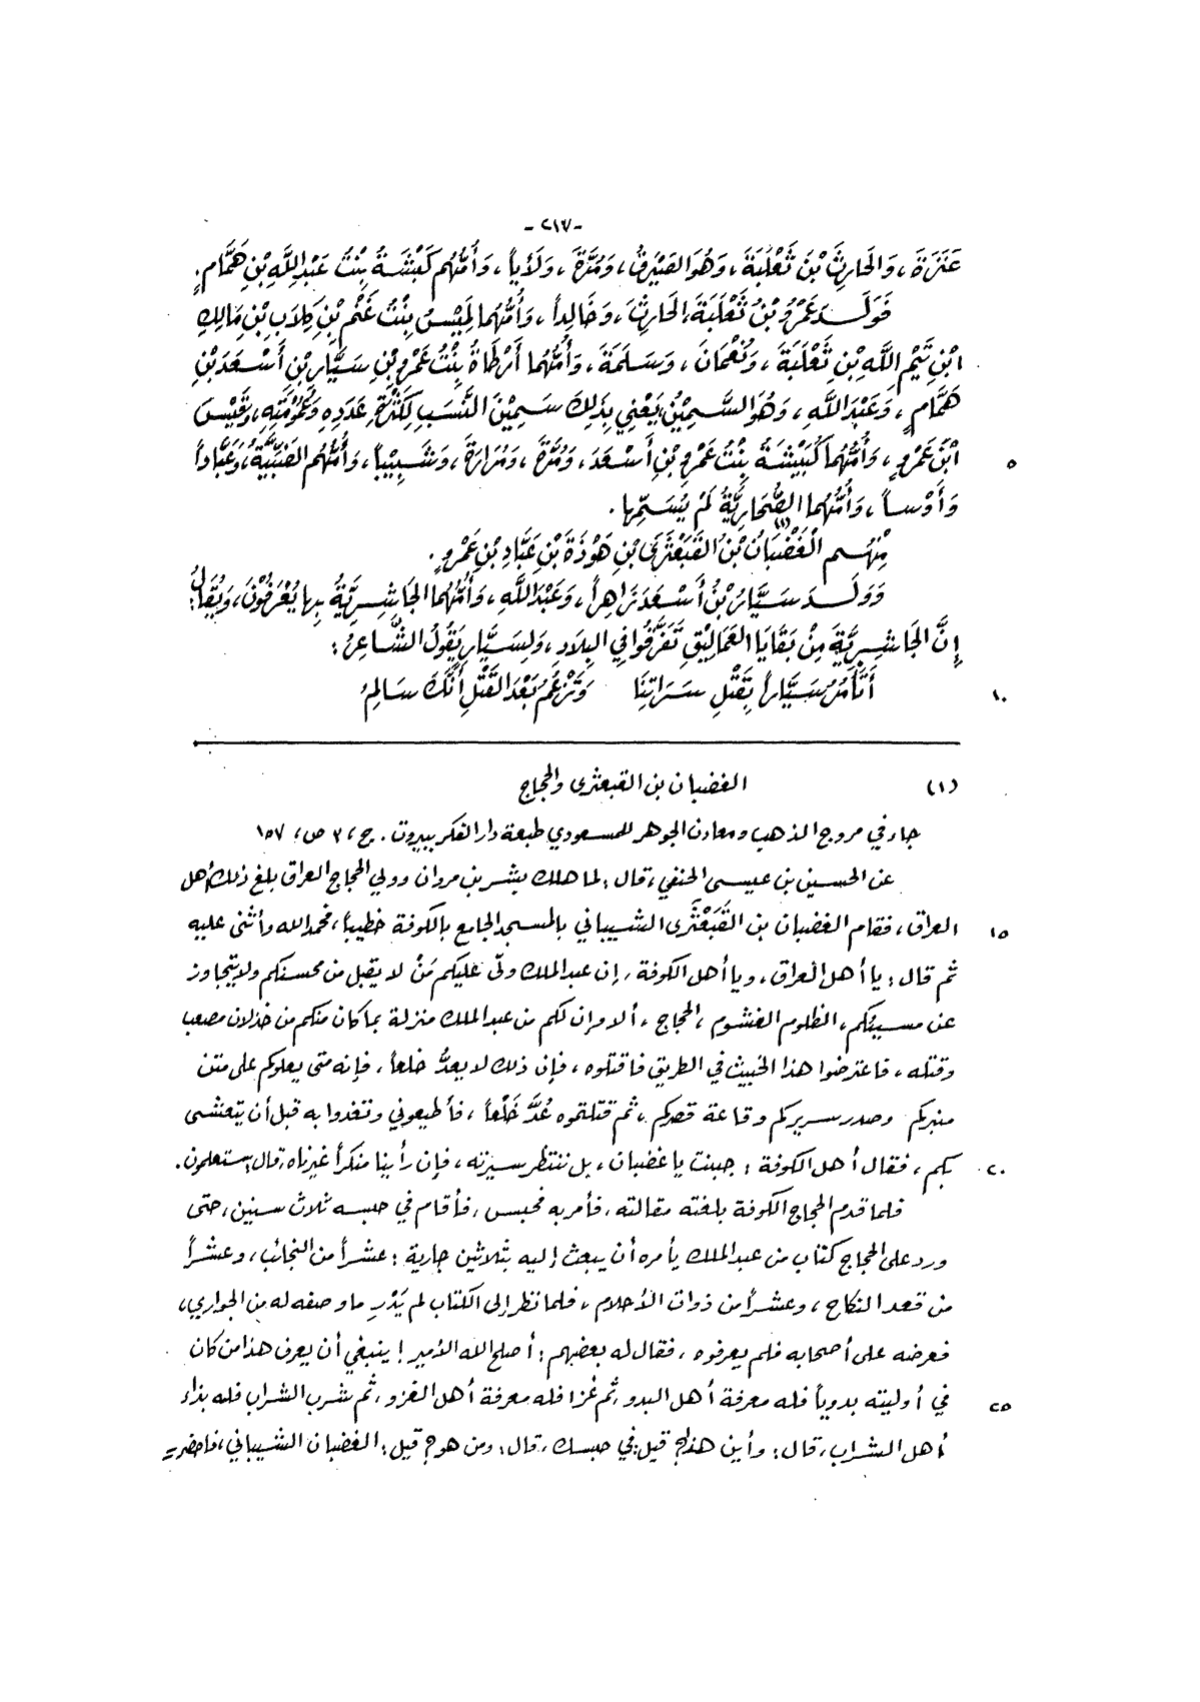 -٢١٧-
عَنَزَةَ، وَالحَارِثَ بْنَ ثَعْلَبَةَ، وَهُوَ الصَّيْرَفُ، وَمُرَّةَ، وَلَأْياً، وَأُمُّهُم كَبْشَةُ بِنْتُ عَبْدِ اللَّهِ بْنِ هَمَّامٍ.
فَوَلَدَ عَمْرُو بْنُ ثَعْلَبَةَ: الحَارِثَ، وَخَالِداً، وَأُمُّهُما لَمِيْسُ بِنْتُ غَنْمِ بْنِ كِلَابِ بْنِ مَالِكِ
ابْنِ تَيْمِ اللَّهِ بْنِ ثَعْلَبَةَ، وَنُعْمَانَ، وَسَلَمَةَ، وَأُمُّهُما أَرْطَاةُ بِنْتُ عَمْرِو بْنِ سَيَّارِ بْنِ أَسْعَدَ بْنِ
هَمَّامٍ، وَعَبْدَ اللَّهِ، وَهُوَ السَّمِيْنُ، يَعْنِي بِذَلِكَ سَمِيْنَ النَّسَبِ لِكَثْرَةِ عَدَدِهِ وَعُمُوْمَتِهِ، وَقَيْسَ
ابْنَ عَمْرٍو، وَأُمُّهُمَا كُبَيْشَةُ بِنْتُ عَمْرِو بْنِ أَسْعَدَ، وَمُرَّةَ، وَمُرَارَةَ، وَشَبِيْباً، وَأُمُّهُم الضَّبِّيَّةُ، وَعَبَّاداً
٥
وَأَوْساً، وَأُمُّهُما الصُّحَارِيَّةُ لَمْ يُسَمِّها.
مِنْهُم الْغَضْبَانُ(١) بْنُ القَبَعْثَرَى بْنِ هَوْذَةَ بْنِ عَبَّادِ بْنِ عَمْرٍو.
وَوَلَدَ سَيَّارُ بْنُ أَسْعَدَ زَاهِراً، وَعَبْدَ اللَّهِ، وَأُمُّهُما الجَاشِرِيَّةُ بِها يُعْرَفُوْنَ، وَيُقَالُ:
إِنَّ الجَاشِرِيَّةَ مِنْ بَقَايَا العَمَالِيْقِ تَفَرَّقُوا فِي البِلَادِ، وَلِسَيَّارٍ يَقُولُ الشَّاعِرُ:
أَتَأْمُرُ سَيَّاراً بِقَتْلِ سَرَاتِنَا وَتَزْعُمُ بَعْدَ القَتْلِ أَنَّكَ سَالِمُ
١٠
(١) الغضبان بن القبعثرى والحجاج
جاء في مروج الذهب ومعادن الجوهر للمسعودي طبعة دار الفكر ببيروت. ج، ٣ ص، ١٥٧
عن الحسين بن عيسى الحنفي، قال: لما هلك بشر بن مروان وولي الحجاج العراق بلغ ذلك أهل
العراق، فقام الغضبان بن القَبَعْثَرى الشيباني بالمسجد الجامع بالكوفة خطيباً، فحمد الله وأثنى عليه
١٥
ثم قال: يا أهل العراق، ويا أهل الكوفة، إن عبد الملك ولّى عليكم مَنْ لا يقبل من محسنكم ولا يتجاوز
عن مسيئكم، الظلوم الغشوم، الحجاج، ألا وإن لكم من عبد الملك منزلة بما كان منكم من خذلان مصعب
وقتله، فاعترضوا هذا الخبيث في الطريق فاقتلوه، فإن ذلك لا يعدُّ خلعاً، فإنه متى يعلوكم على متن
منبركم وصدر سريركم وقاعة قصركم، ثم قتلتموه عُدَّ خَلْعاً، فأطيعوني وتغدوا به قبل أن يتعشى
بكم، فقال أهل الكوفة: جبنت يا غضبان، بل ننتظر سيرته، فإن رأينا منكراً غيرناه، قال: ستعلمون.
٢٠
فلما قدم الحجاج الكوفة بلغته مقالته، فأمر به فحبس، فأقام في حبسه ثلاث سنين، حتى
ورد على الحجاج كتاب من عبد الملك يأمره أن يبعث إليه بثلاثين جارية: عشراً من النجائب، وعشراً
من قعد النكاح، وعشراً من ذوات الأحلام، فلما نظر إلى الكتاب لم يَدْرِ ما وصفه له من الجواري،
فعرضه على أصحابه فلم يعرفوه، فقال له بعضهم: أصلح الله الأمير! ينبغي أن يعرف هذا من كان
في أوليته بدوياً فله معرفة أهل البدو، ثم غزا فله معرفة أهل الغزو، ثم شرب الشراب فله بذاء
٢٥
أهل الشراب، قال: وأين هذا؟ قيل: في حبسك، قال: ومن هو؟ قيل: الغضبان الشيباني، فأحضر